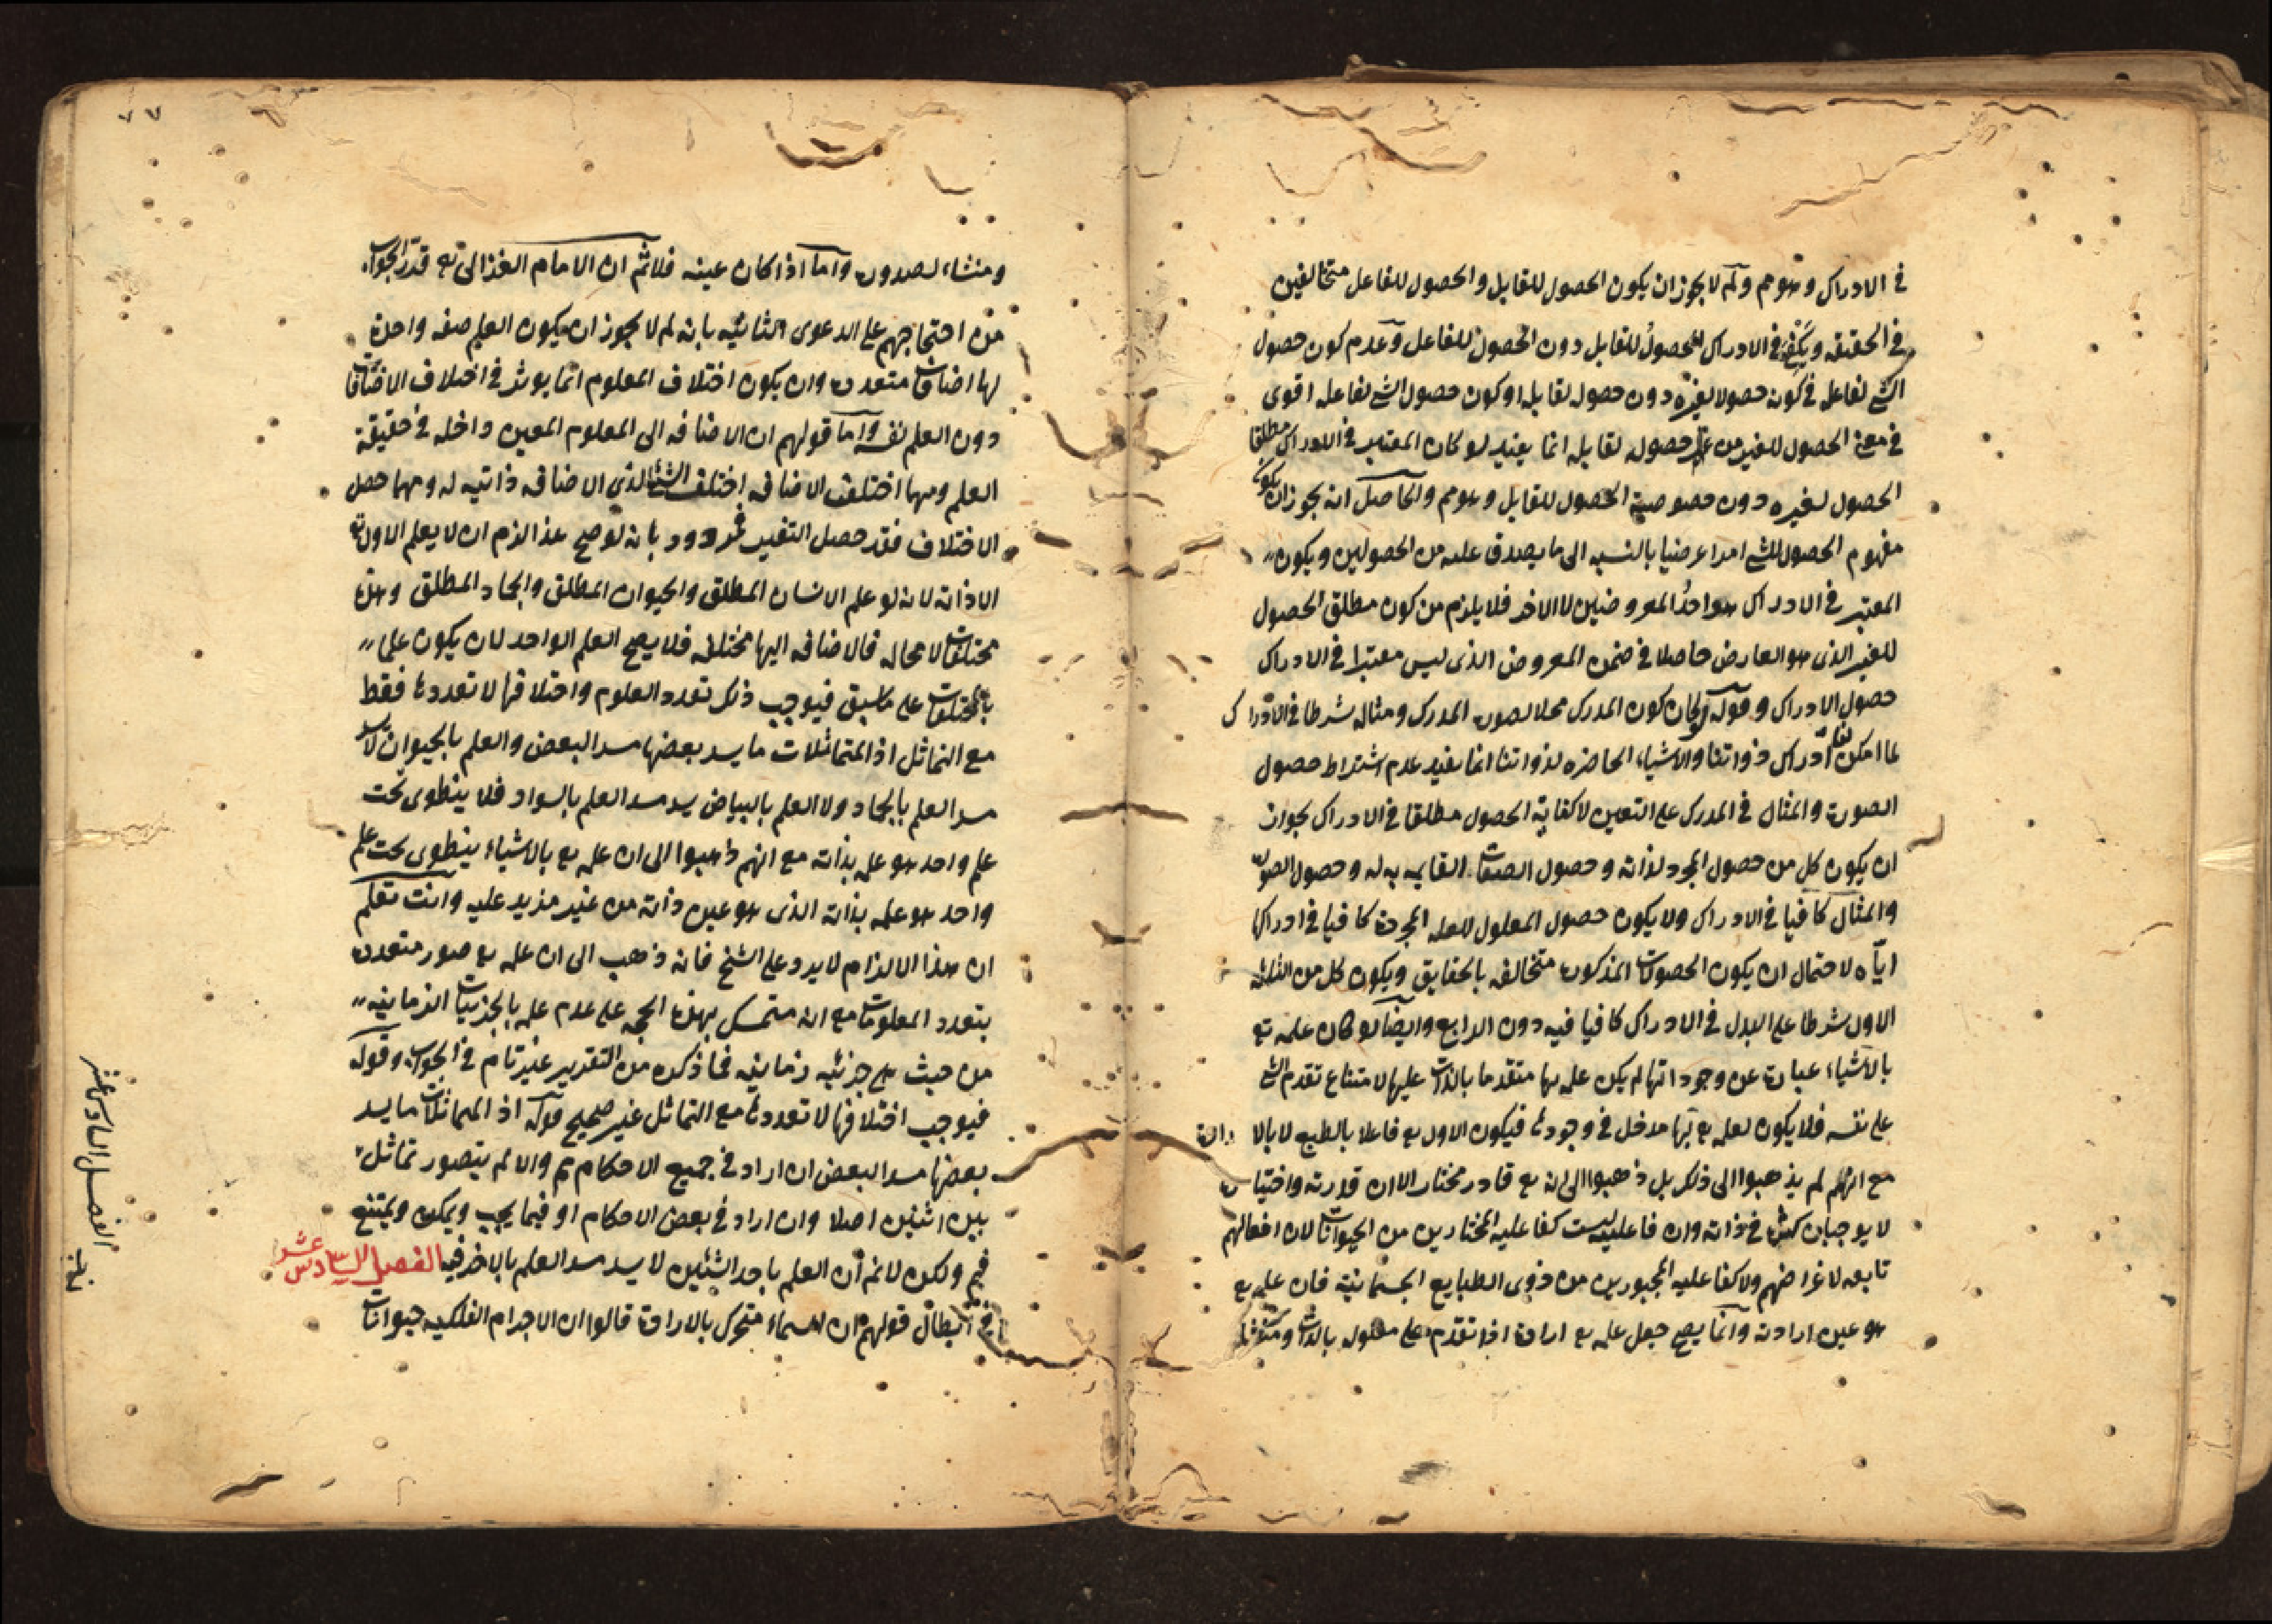 في الادراك وهو مم ولم لا يجوز ان يكون الحصول للقابل والحصول للفاعل متخالفين
في الحقيقة ويكفي في الادراك الحصول للقابل دون الحصول للفاعل وعدم كون حصول
الشئ لفاعله في كونه حصولا لغيره دون حصوله لقابله او كون حصول الشئ لفاعله اقوى
في معنى الحصول للغير من حصوله لقابله انما يفيد لو كان المعتبر في الادراك مطلقا
الحصول لغيره دون خصوصية الحصول للقابل وهو مم والحاصل انه يجوز ان يكون
مفهوم الحصول للشئ امرا عرضيا بالنسبه الى ما يصدق عليه من الحصولين ويكون
المعتبر في الادراك هو احد المعروضين لا الاخر فلا يلزم من كون مطلق الحصول
للغير الذى هو العارض حاصلا في ضمن المعروض الذى ليس معتبرا في الادراك
حصول الادراك وقوله لو كان كون المدرك محلا لصورة المدرك ومثاله شرطا في الادراك
لما امكن لنا ادراك ذواتنا والاشياء الحاضره لذواتنا انما يفيد عدم اشتراط حصول
الصورة والمثال في المدرك على التعيين لا كفاية الحصول مطلقا في الادراك لجواز
ان يكون كل من حصول المجرد لذاته وحصول الصفات القايمه به له وحصول الصورة
والمثال كافيا في الادراك ولا يكون حصول المعلول للعله المجردة كافيا في ادراكها
اياه لاحتمال ان يكون الحصولات المذكورة متخالفه بالحقايق ويكون كل من الثلثة
الاول شرطا على البدل في الادراك كافيا فيه دون الرابع وايضا لو كان علمه تع
بالاشياء عبارة عن وجوداتها لم يكن علمه بها متقدما بالذات عليها لامتناع تقدم الشئ
على نفسه فلا يكون لعلمه تع بها مدخل في وجودها فيكون الاول تع فاعلا بالطبع لا بالارادة
مع انهم لم يذهبوا الى ذلك بل ذهبوا الى انه تع قادر مختار الا ان قدرته واختياره
لا يوجبان كثرة في ذاته وان فاعليته ليست كفاعليه المختارين من الحيوانات لان افعالهم
تابعه لاغراضهم ولا كفاعليه المجبورين من ذوى الطبايع الجسمانية فان علمه تع
هو عين ارادته وانما يصح جعل علمه تع ارادة اذا تقدم على معلوله بالذات
ومنشاء لصدوره واما اذا كان عينه فلا ثم ان الامام الغزالى تع قدر الجواب
من احتجاجهم على الدعوى الثانيه بانه لم لا يجوز ان يكون العلم صفه واحدة
لها اضافات متعددة وان يكون اختلاف المعلوم انما يوثر في اختلاف الاضافات
دون العلم نفسه واما قولهم ان الاضافه الى المعلوم المعين داخله في حقيقة
العلم ومهما اختلفت الاضافه اختلف الشئ الذى الاضافه ذاتيه له ومهما حصل
الاختلاف فقد حصل التغير فمردود بانه لو صح هذا لزم ان لا يعلم الاول تع
الا ذاته لانه لو علم الانسان المطلق والحيوان المطلق والجماد المطلق وهذه
مختلفات لا محاله فالاضافه اليها مختلفه فلا يصح العلم الواحد لان يكون علما
بالمختلفات على ما سبق فيوجب ذلك تعدد العلوم واختلافها لا تعددها فقط
مع التماثل اذ المتماثلات ما يسد بعضها مسد البعض والعلم بالحيوان لا يسد
مسد العلم بالجماد ولا العلم بالبياض يسد مسد العلم بالسواد فلا ينطوى تحت
علم واحد هو علمه بذاته مع انهم ذاهبوا الى ان علمه تع بالاشياء ينطوى تحت علم
واحد هو علمه بذاته الذى هو عين ذاته من غير مزيد عليه وانت تعلم
ان هذا الالزام لا يرد على الشيخ فانه ذهب الى ان علمه تع صور متعددة
بتعدد المعلومات مع انه متمسك بهذه الحجه على عدم علمه بالجزئيات الزمانيه
من حيث هى جزئيه زمانيه فما ذكره من التقدير غير تام في الجواب وقوله
فيوجب اختلافها لا تعددها مع التماثل غير صحيح قوله اذ المتماثلات ما يسد
بعضها مسد البعض ان اراد في جميع الاحكام مم والا لم يتصور تماثل
بين اثنين اصلا وان اراد في بعض الاحكام او فيما يجب ويمكن ويمتنع
فمم ولكن لا نم ان العلم باحد الشيئين لا يسد مسد العلم بالاخر فيه الفصل السادس عشر
في ابطال قولهم ان السماء متحرك بالارادة قالوا ان الاجرام الفلكيه حيوانات
الفصل السادس عشر